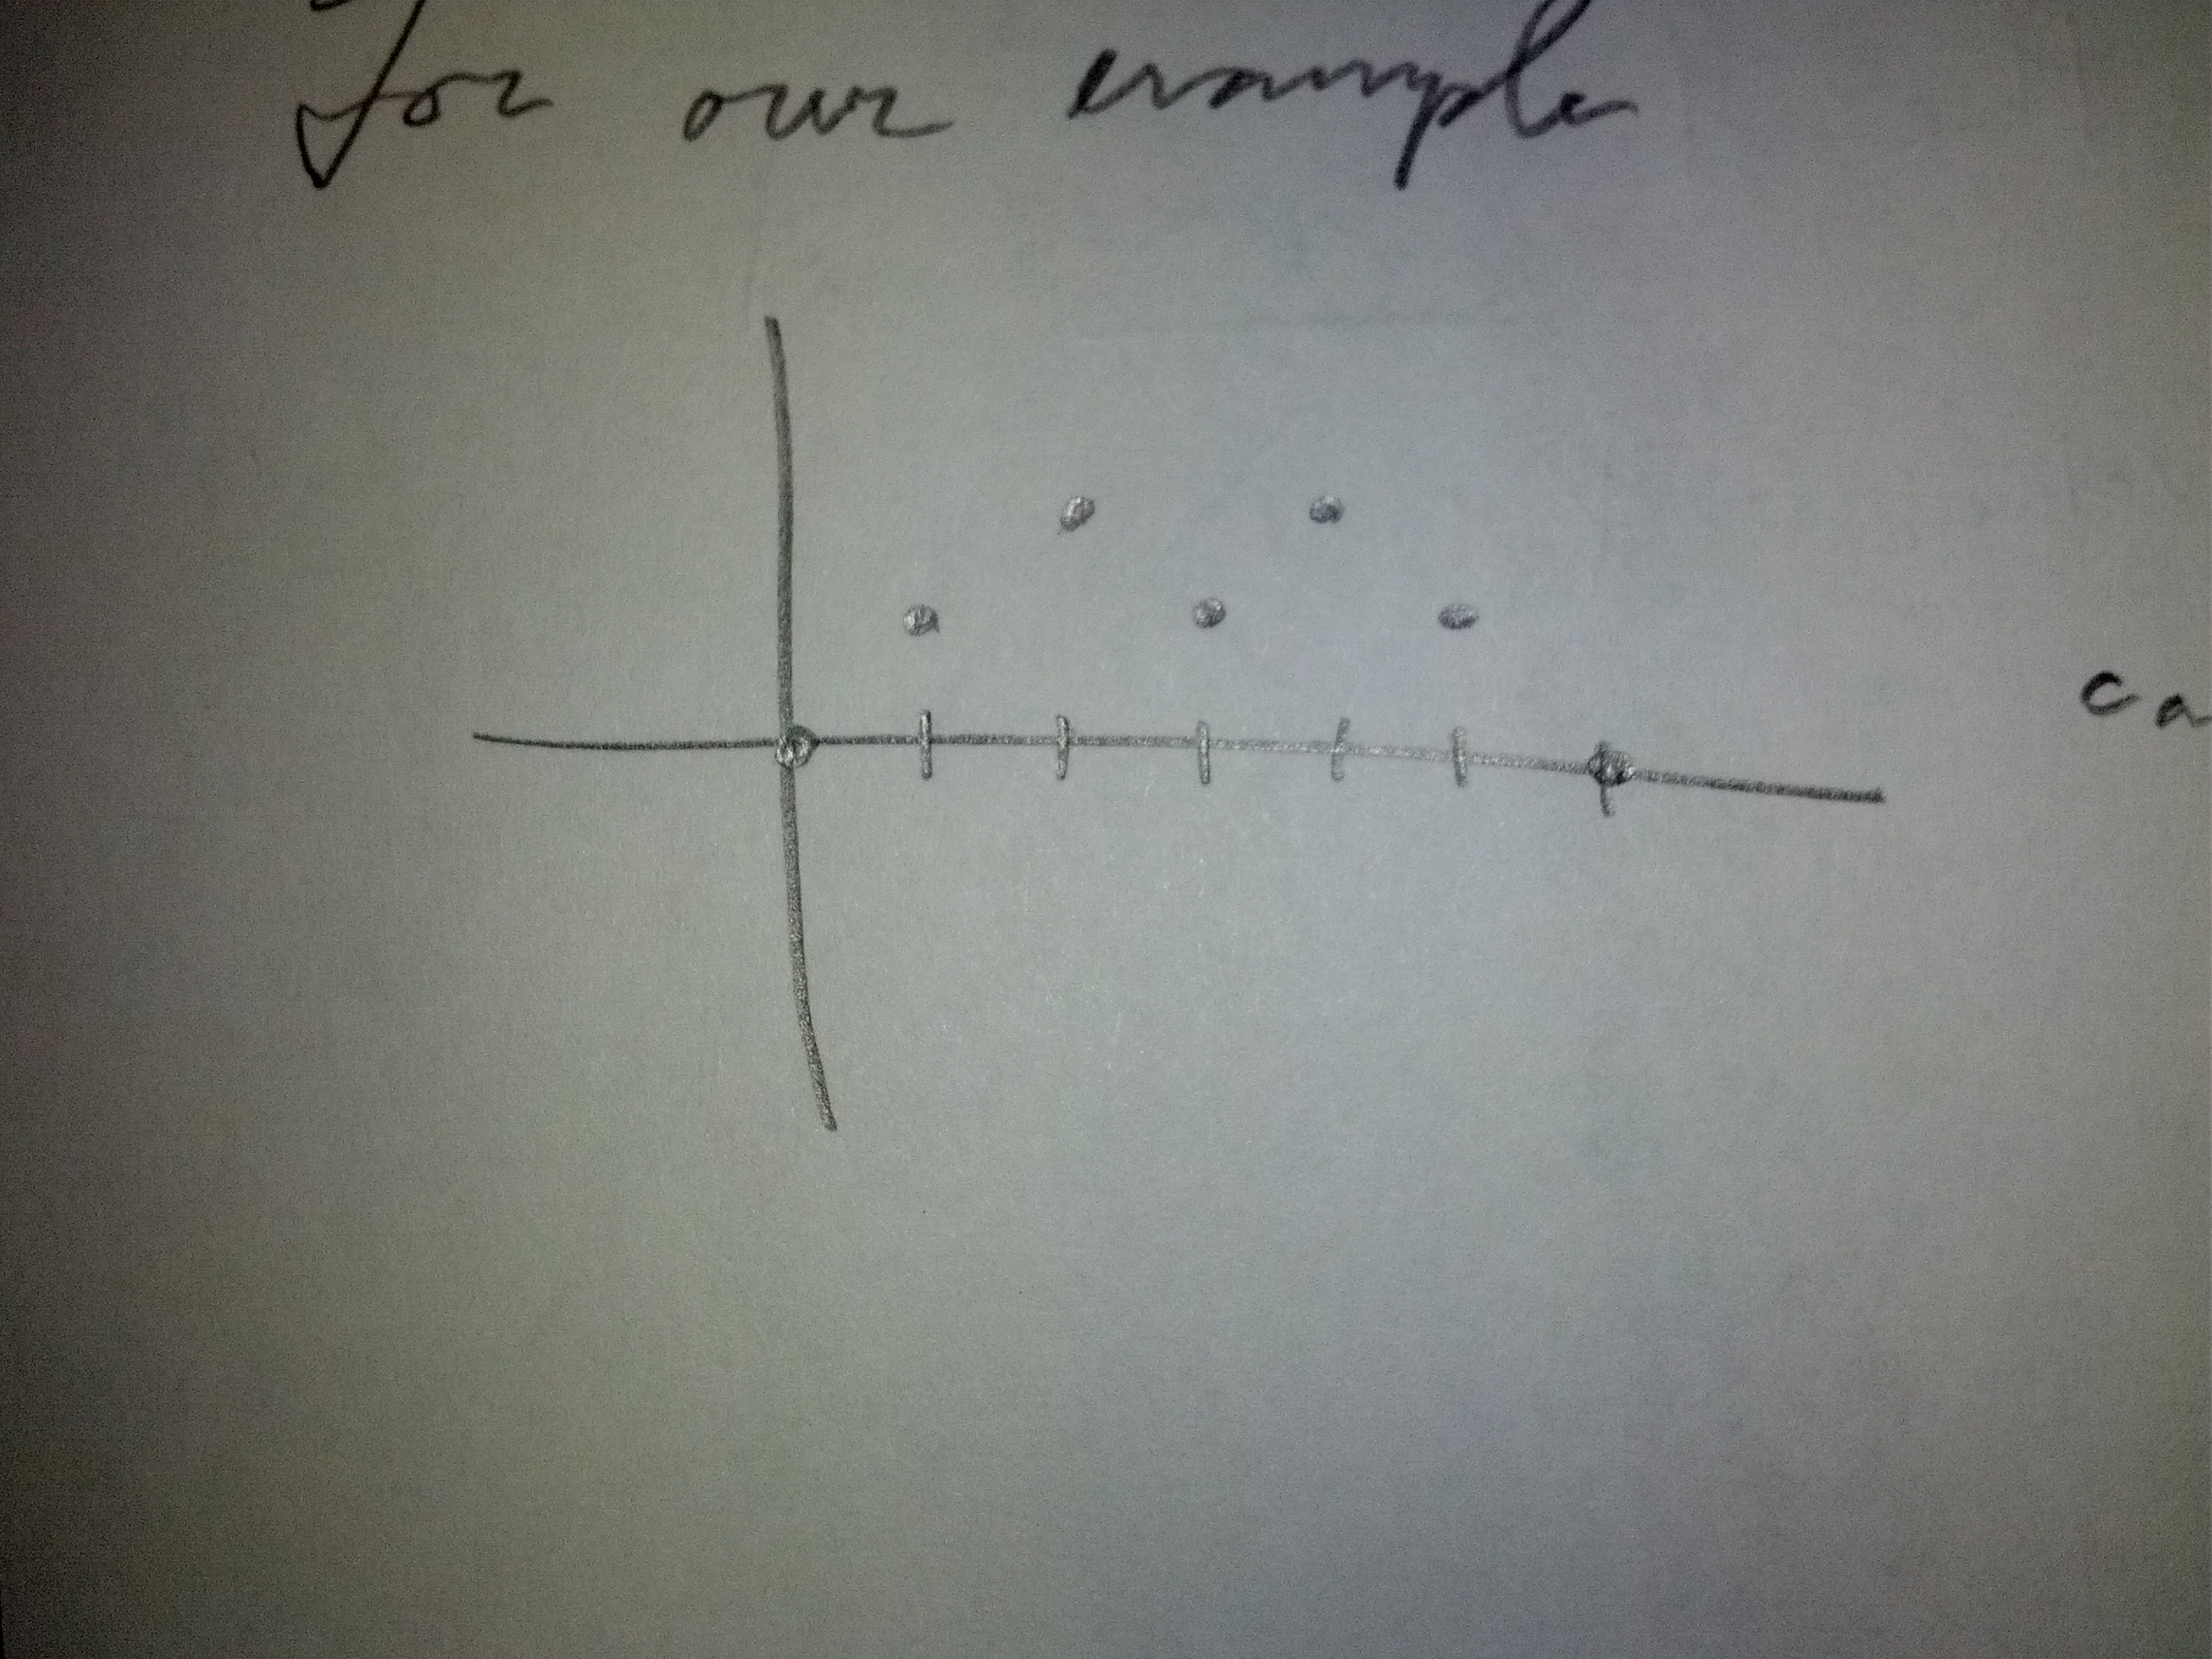 For our example
ca